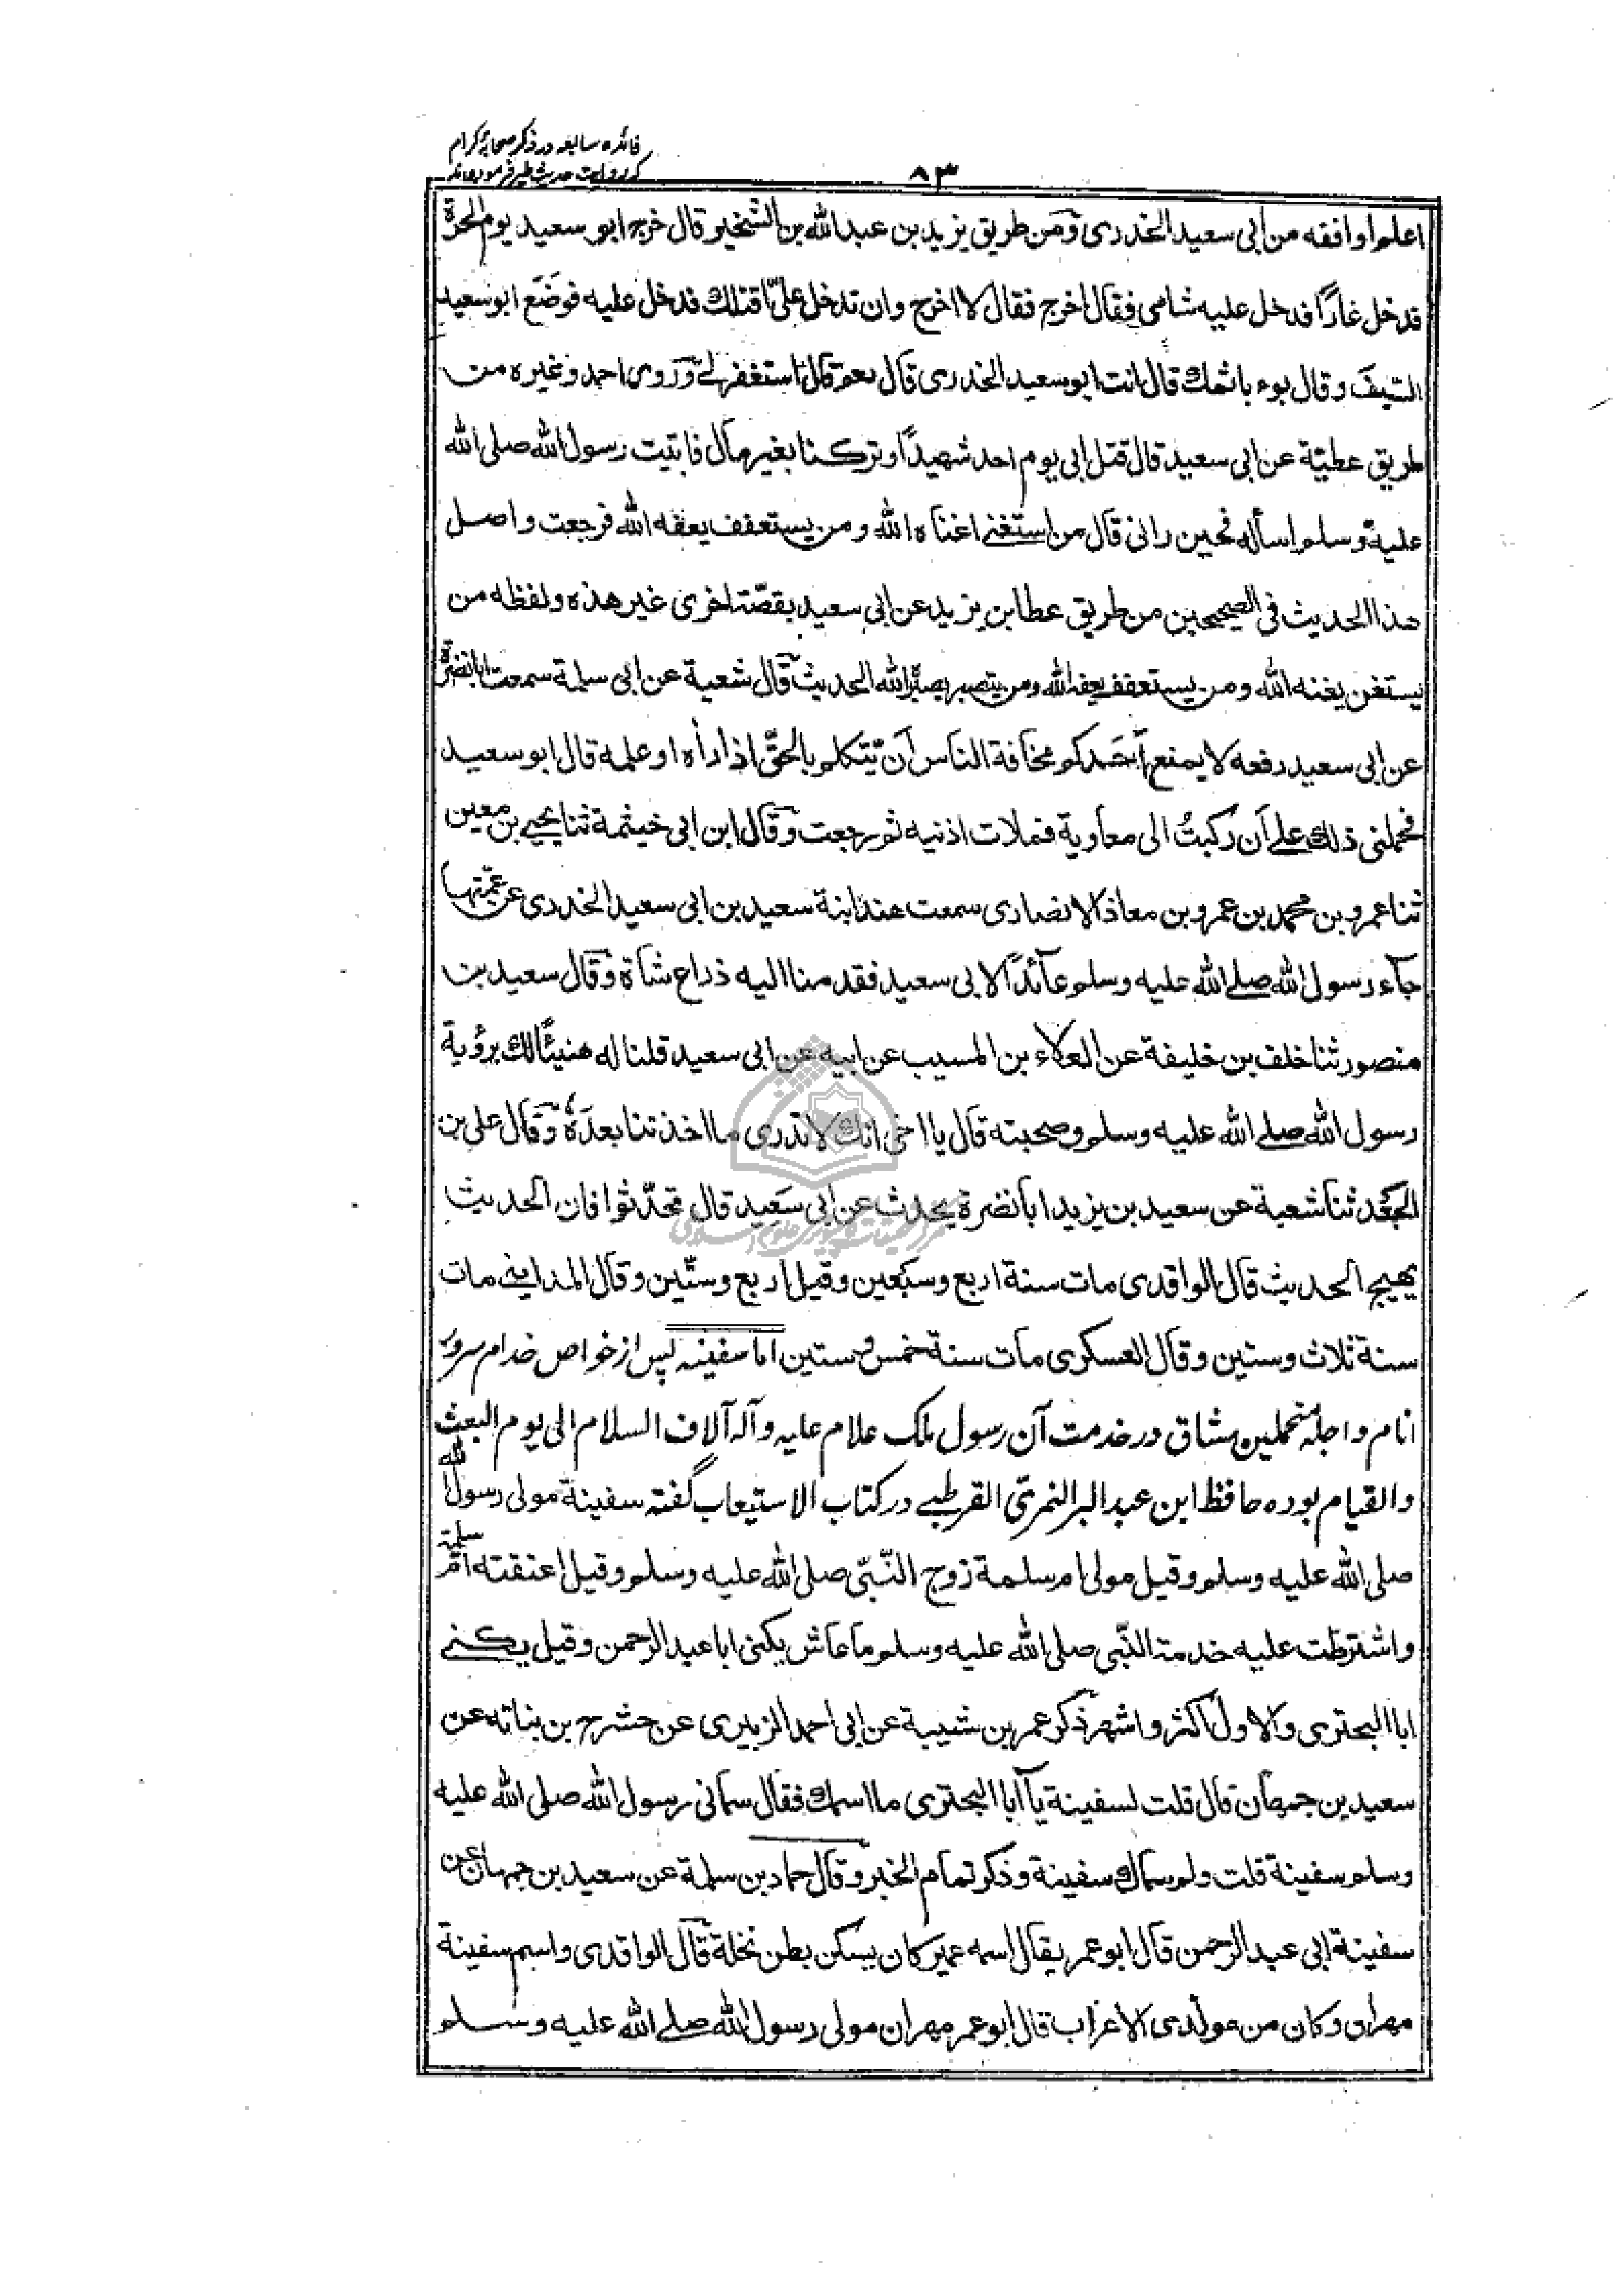 فائده سابعه در ذکر صحابهٔ کرام
که روایت حدیث طیر فرموده‌اند
۸۳
اعلم اوافقه من ابی سعید الخدری ومن طریق یزید بن عبدالله بن الشخیر قال خرج ابو سعید یوم الحرة
فدخل غارًا فدخل علیه شامی فقال اخرج فقال لا اخرج وان تدخل علیّ اقتلك فدخل علیه فوضع ابو سعید
السیف وقال بوء باثمك قال انت ابو سعید الخدری قال نعم قال استغفر لے وروی احمد وغیره من
طریق عطیّة عن ابی سعید قال قتل ابی یوم احد شهیدًا وترکنا بغیر مال فاتیت رسول الله صلی الله
علیه وسلم اسأله فحین رانی قال من استغنے اغناه الله ومن یستعفف یعفه الله فرجعت واصل
هذا الحدیث فی الصحیحین من طریق عطا بن یزید عن ابی سعید بقصّة اخری غیر هذه ولفظه من
یستغن یغنه الله ومن یستعفف یعفه الله ومن یتصبر یصبّره الله الحدیث قال شعبة عن ابی سلمة سمعت ابا نضرة
عن ابی سعید رفعه لا یمنع احدکم مخافة الناس ان یتکلم بالحقّ اذا رأه او علمه قال ابو سعید
فحملنی ذلك علے ان رکبتُ الی معاویة فملات اذنیه ثم رجعت وقال ابن ابی خیثمة ثنا یحیے بن معین
ثنا عمرو بن محمد بن عمرو بن معاذ الانصاری سمعت هند ابنة سعید بن ابی سعید الخدری عن عمّتها
جاء رسول الله صلے الله علیه وسلم عائدًا لابی سعید فقدمنا الیه ذراع شاة وقال سعید بن
منصور ثنا خلف بن خلیفة عن العلاء بن المسیب عن ابیه عن ابی سعید قلنا له هنیئًا لك برؤیة
رسول الله صلے الله علیه وسلم وصحبته قال یا اخی انك لا تدری ما اخذتنا بعده وقال علی بن
الجعد ثنا شعبة عن سعید بن یزید ابا نضرة یحدث عن ابی سعید قال تحدّثوا فان الحدیث
یهیج الحدیث قال الواقدی مات سنة اربع وسبعین وقیل اربع وستّین وقال المداینے مات
سنة ثلاث وستین وقال العسکری مات سنة خمس وستین اما سفینه پس از خواص خدام سرور
انام واجلهٔ متحملین مشاق در خدمت آن رسول ملک علام علیه وآله آلاف السلام الی یوم البعث
والقیام بوده حافظ ابن عبد البر النمریّ القرطبے در کتاب الاستیعاب گفته سفینة مولی رسول الله
صلی الله علیه وسلم وقیل مولی ام سلمة زوج النّبیّ صلی الله علیه وسلم وقیل اعتقته امّ سلمة
واشترطت علیه خدمة النّبی صلی الله علیه وسلم ما عاش یکنی ابا عبد الرحمن وقیل یکنے
ابا البحتری والاول اکثر واشهر ذکر عمر بن شیبة عن ابی احمد الزبیری عن حشرج بن بناته عن
سعید بن جمهان قال قلت لسفینة یا ابا البحتری ما اسمك فقال سمانی رسول الله صلی الله علیه
وسلم سفینة قلت ولم سماك سفینة وذکر تمام الخبر وقال حماد بن سلمة عن سعید بن جمهان عن
سفینة ابی عبد الرحمن قال ابو عمر یقال اسمه عمیر کان یسکن بطن نخلة قال الواقدی واسم سفینة
مهران وکان من مولدی الاعراب قال ابو عمر مهران مولی رسول الله صلے الله علیه وسلم
مرکز تحقیقات کامپیوتری علوم اسلامی